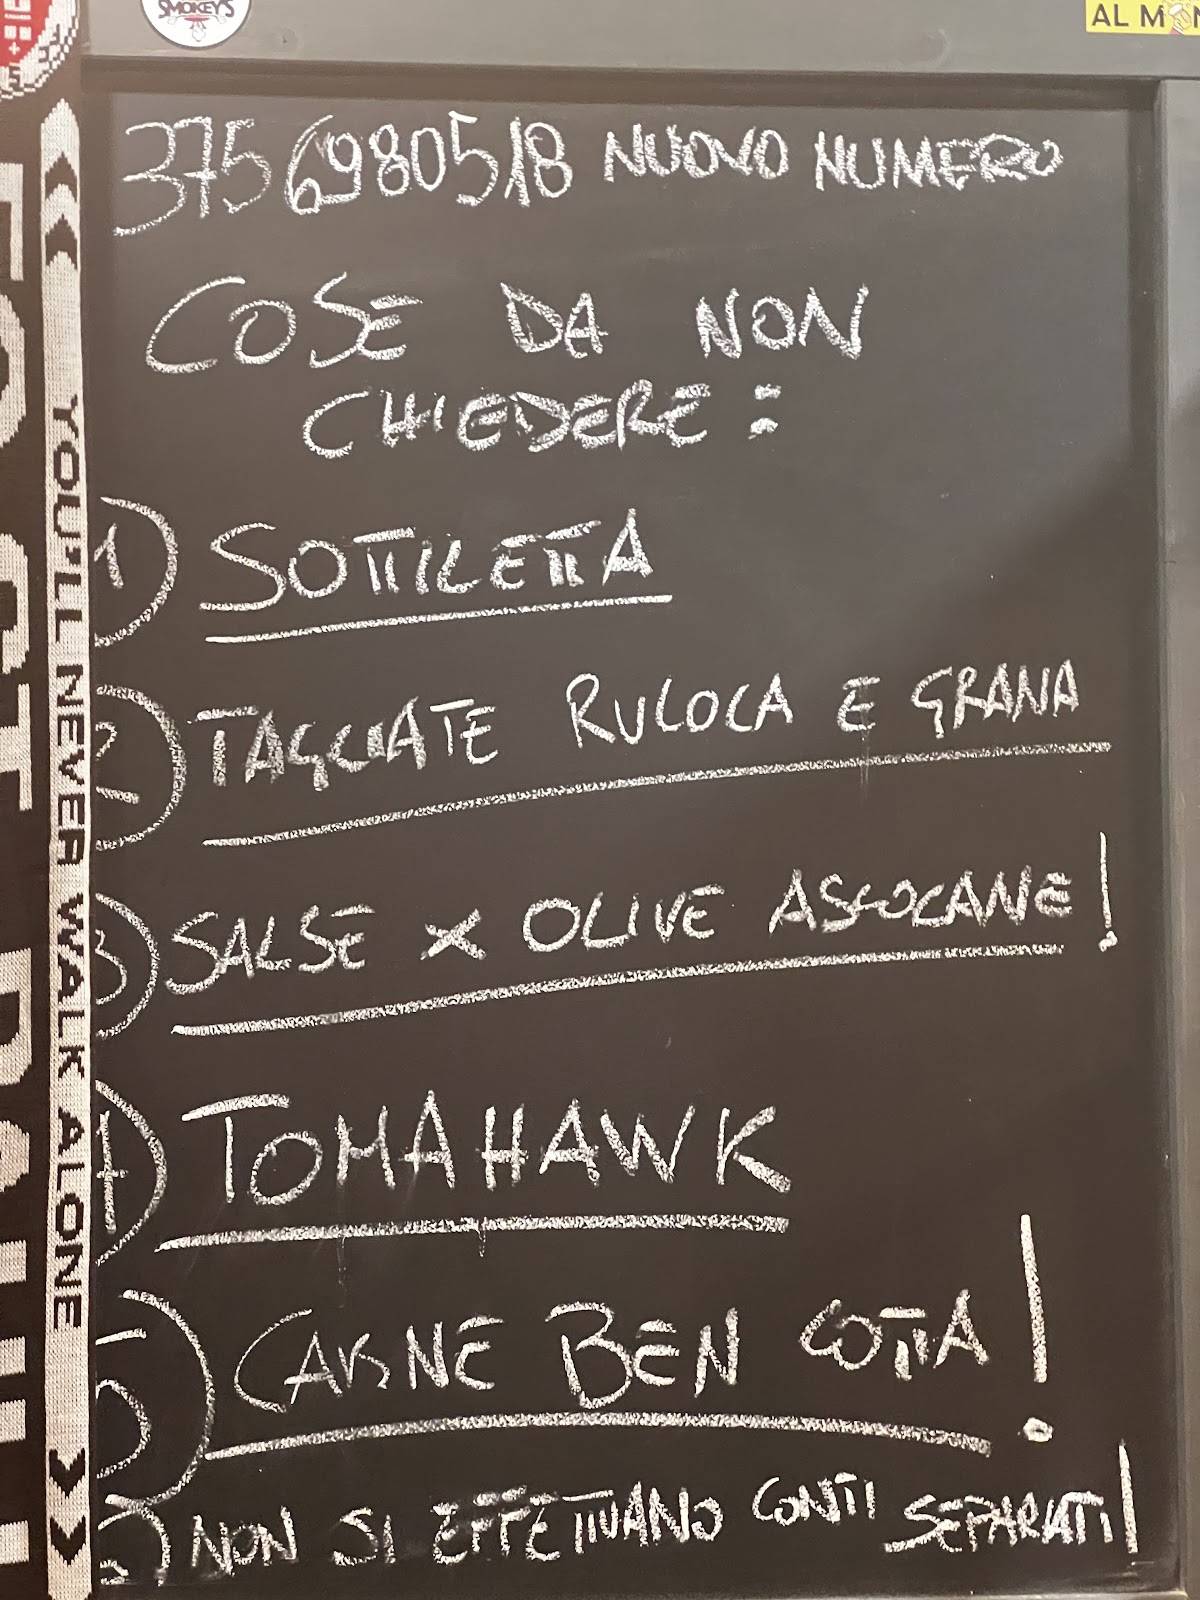 SMOKEY'S
AL M
375 6980518 NUOVO NUMERO
COSE DA NON
CHIEDERE:
1) SOTTILETTA
2) TAGLIATE RUCOLA E GRANA
3) SALSE X OLIVE ASCOLANE!
4) TOMAHAWK
5) CARNE BEN COTTA!
NON SI EFFETTUANO CONTI SEPARATI!
YOU'LL NEVER WALK ALONE